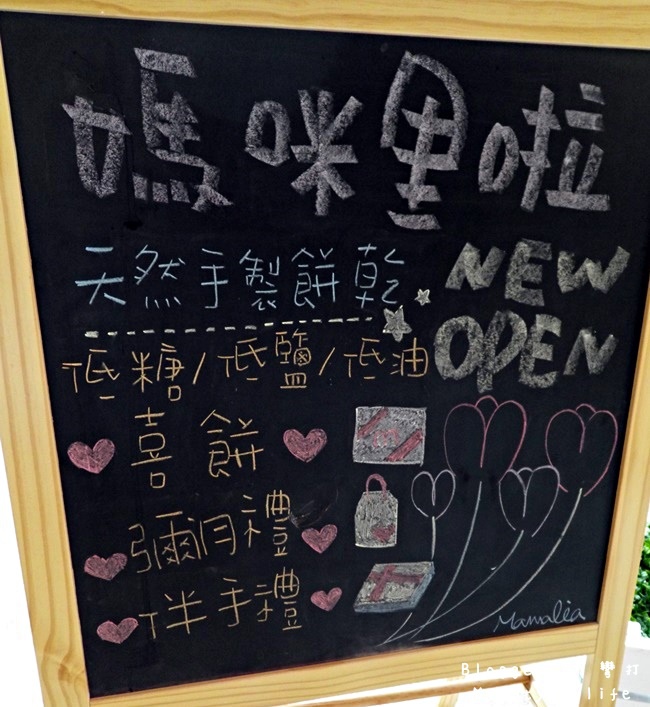 媽咪里啦
天然手製餅乾
NEW
OPEN
低糖/低鹽/低油
喜餅
彌月禮
伴手禮
Mamalea
life